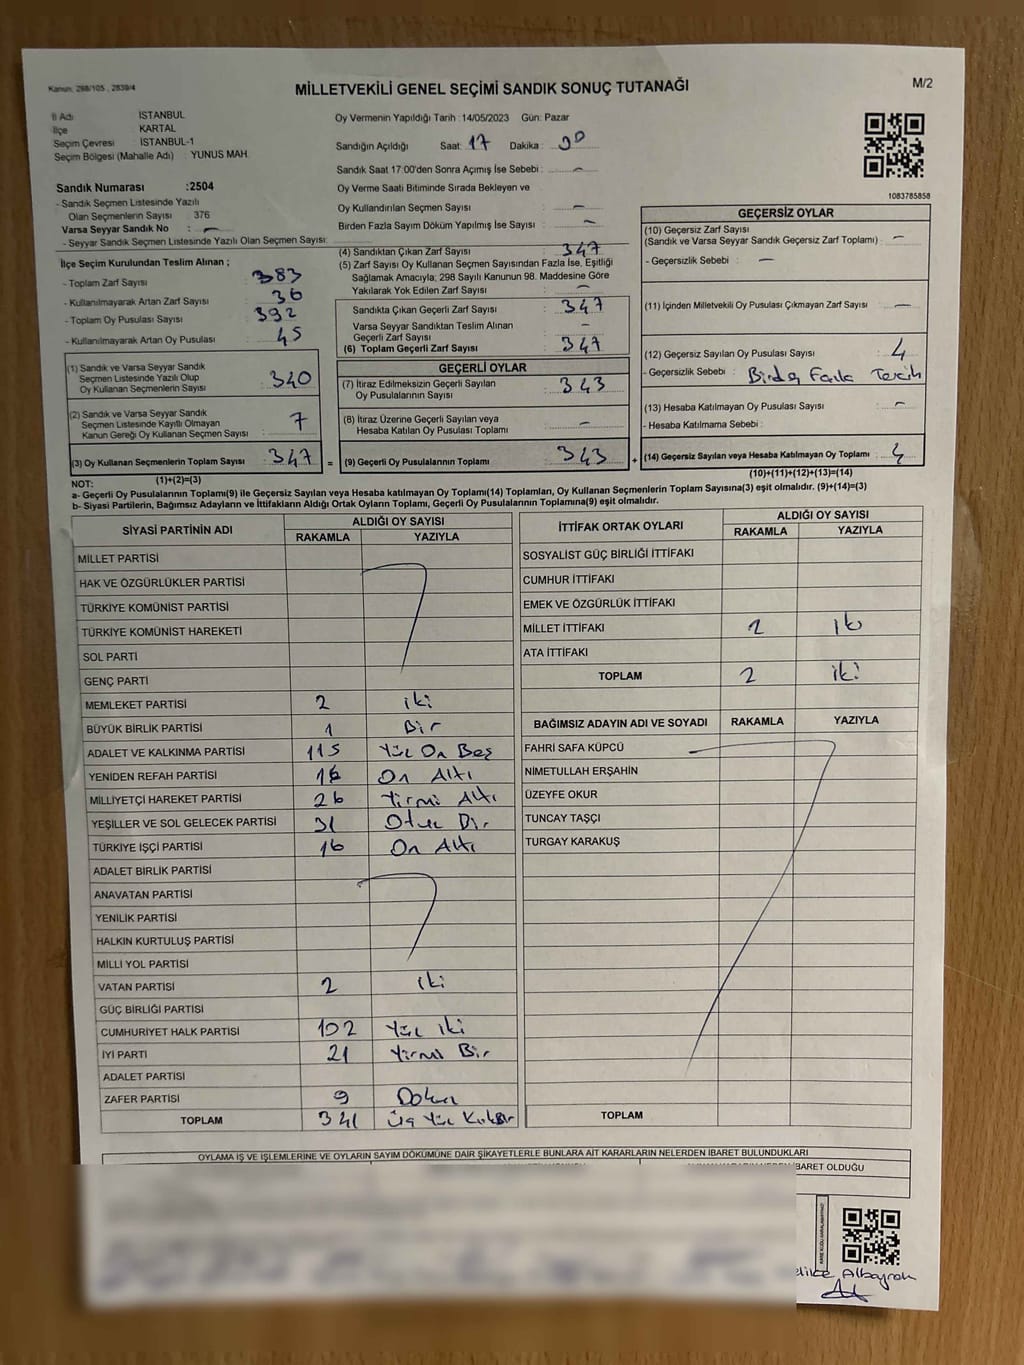 Kanun: 298/105 , 2839/4
MİLLETVEKİLİ GENEL SEÇİMİ SANDIK SONUÇ TUTANAĞI
M/2
İl Adı : İSTANBUL
İlçe : KARTAL
Seçim Çevresi : İSTANBUL-1
Seçim Bölgesi (Mahalle Adı) : YUNUS MAH.
Sandık Numarası :2504
- Sandık Seçmen Listesinde Yazılı
Olan Seçmenlerin Sayısı : 376
Varsa Seyyar Sandık No : –
- Seyyar Sandık Seçmen Listesinde Yazılı Olan Seçmen Sayısı:
Oy Vermenin Yapıldığı Tarih : 14/05/2023 Gün: Pazar
Sandığın Açıldığı Saat: 17 Dakika :
Sandık Saat 17:00'den Sonra Açımış İse Sebebi : –
Oy Verme Saati Bitiminde Sırada Bekleyen ve
Oy Kullandırılan Seçmen Sayısı : –
Birden Fazla Sayım Döküm Yapılmış İse Sayısı : –
1083785858
İlçe Seçim Kurulundan Teslim Alınan ;
- Toplam Zarf Sayısı : 383
- Kullanılmayarak Artan Zarf Sayısı : 36
- Toplam Oy Pusulası Sayısı : 392
- Kullanılmayarak Artan Oy Pusulası : 45
(1) Sandık ve Varsa Seyyar Sandık
Seçmen Listesinde Yazılı Olup
Oy Kullanan Seçmenlerin Sayısı : 340
(2) Sandık ve Varsa Seyyar Sandık
Seçmen Listesinde Kayıtlı Olmayan
Kanun Gereği Oy Kullanan Seçmen Sayısı : 7
(3) Oy Kullanan Seçmenlerin Toplam Sayısı : 347
(1)+(2)=(3)
(4) Sandıktan Çıkan Zarf Sayısı : 347
(5) Zarf Sayısı Oy Kullanan Seçmen Sayısından Fazla İse, Eşitliği
Sağlamak Amacıyla; 298 Sayılı Kanunun 98. Maddesine Göre
Yakılarak Yok Edilen Zarf Sayısı : –
Sandıkta Çıkan Geçerli Zarf Sayısı : 347
Varsa Seyyar Sandıktan Teslim Alınan
Geçerli Zarf Sayısı : –
(6) Toplam Geçerli Zarf Sayısı : 347
GEÇERLİ OYLAR
(7) İtiraz Edilmeksizin Geçerli Sayılan
Oy Pusulasının Sayısı : 343
(8) İtiraz Üzerine Geçerli Sayılan veya
Hesaba Katılan Oy Pusulası Toplamı : –
= (9) Geçerli Oy Pusulalarının Toplamı : 343 +
GEÇERSİZ OYLAR
(10) Geçersiz Zarf Sayısı
(Sandık ve Varsa Seyyar Sandık Geçersiz Zarf Toplamı) : –
- Geçersizlik Sebebi : –
(11) İçinden Milletvekili Oy Pusulası Çıkmayan Zarf Sayısı : –
(12) Geçersiz Sayılan Oy Pusulası Sayısı : 4
- Geçersizlik Sebebi : Birden Fazla Tercih
(13) Hesaba Katılmayan Oy Pusulası Sayısı : –
- Hesaba Katılmama Sebebi :
(14) Geçersiz Sayılan veya Hesaba Katılmayan Oy Toplamı : 4
(10)+(11)+(12)+(13)=(14)
NOT:
a- Geçerli Oy Pusulalarının Toplamı(9) ile Geçersiz Sayılan veya Hesaba katılmayan Oy Toplamı(14) Toplamları, Oy Kullanan Seçmenlerin Toplam Sayısına(3) eşit olmalıdır. (9)+(14)=(3)
b- Siyasi Partilerin, Bağımsız Adayların ve İttifakların Aldığı Ortak Oyların Toplamı, Geçerli Oy Pusulalarının Toplamına(9) eşit olmalıdır.
SİYASİ PARTİNİN ADI ALDIĞI OY SAYISI
RAKAMLA YAZIYLA
MİLLET PARTİSİ
HAK VE ÖZGÜRLÜKLER PARTİSİ
TÜRKİYE KOMÜNİST PARTİSİ
TÜRKİYE KOMÜNİST HAREKETİ
SOL PARTİ
GENÇ PARTİ
MEMLEKET PARTİSİ 2 iki
BÜYÜK BİRLİK PARTİSİ 1 Bir
ADALET VE KALKINMA PARTİSİ 115 Yüz On Beş
YENİDEN REFAH PARTİSİ 16 On Altı
MİLLİYETÇİ HAREKET PARTİSİ 26 Yirmi Altı
YEŞİLLER VE SOL GELECEK PARTİSİ 31 Otuz Bir
TÜRKİYE İŞÇİ PARTİSİ 16 On Altı
ADALET BİRLİK PARTİSİ
ANAVATAN PARTİSİ
YENİLİK PARTİSİ
HALKIN KURTULUŞ PARTİSİ
MİLLİ YOL PARTİSİ
VATAN PARTİSİ 2 iki
GÜÇ BİRLİĞİ PARTİSİ
CUMHURİYET HALK PARTİSİ 102 Yüz iki
İYİ PARTİ 21 Yirmi Bir
ADALET PARTİSİ
ZAFER PARTİSİ 9 Dokuz
TOPLAM 341 Üç Yüz Kırk Bir
İTTİFAK ORTAK OYLARI ALDIĞI OY SAYISI
RAKAMLA YAZIYLA
SOSYALİST GÜÇ BİRLİĞİ İTTİFAKI
CUMHUR İTTİFAKI
EMEK VE ÖZGÜRLÜK İTTİFAKI
MİLLET İTTİFAKI 2 iki
ATA İTTİFAKI
TOPLAM 2 iki
BAĞIMSIZ ADAYIN ADI VE SOYADI RAKAMLA YAZIYLA
FAHRİ SAFA KÜPCÜ
NİMETULLAH ERŞAHİN
ÜZEYFE OKUR
TUNCAY TAŞÇI
TURGAY KARAKUŞ
TOPLAM
OYLAMA İŞ VE İŞLEMLERİNE VE OYLARIN SAYIM DÖKÜMÜNE DAİR ŞİKAYETLERLE BUNLARA AİT KARARLARIN NELERDEN İBARET BULUNDUKLARI
İBARET OLDUĞU
Albayrak